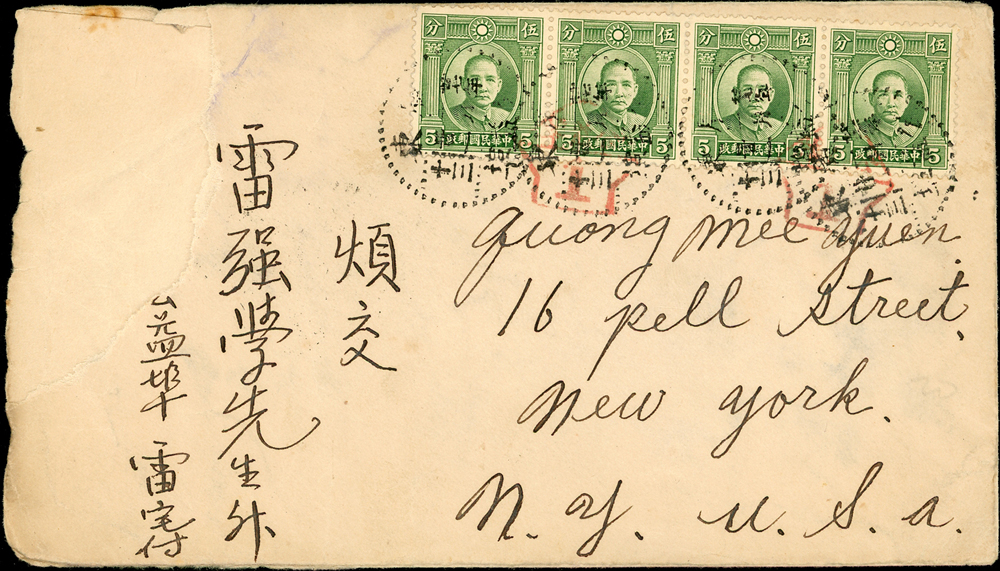 分 伍
5 政郵國民華中 5
分 伍
5 政郵國民華中 5
分 伍
5 政郵國民華中 5
分 伍
5 政郵國民華中 5
quong mee yuen
16 pell street,
new york.
n. y. u. s. a.
煩交
雷强學先生升
益埠 雷宅付